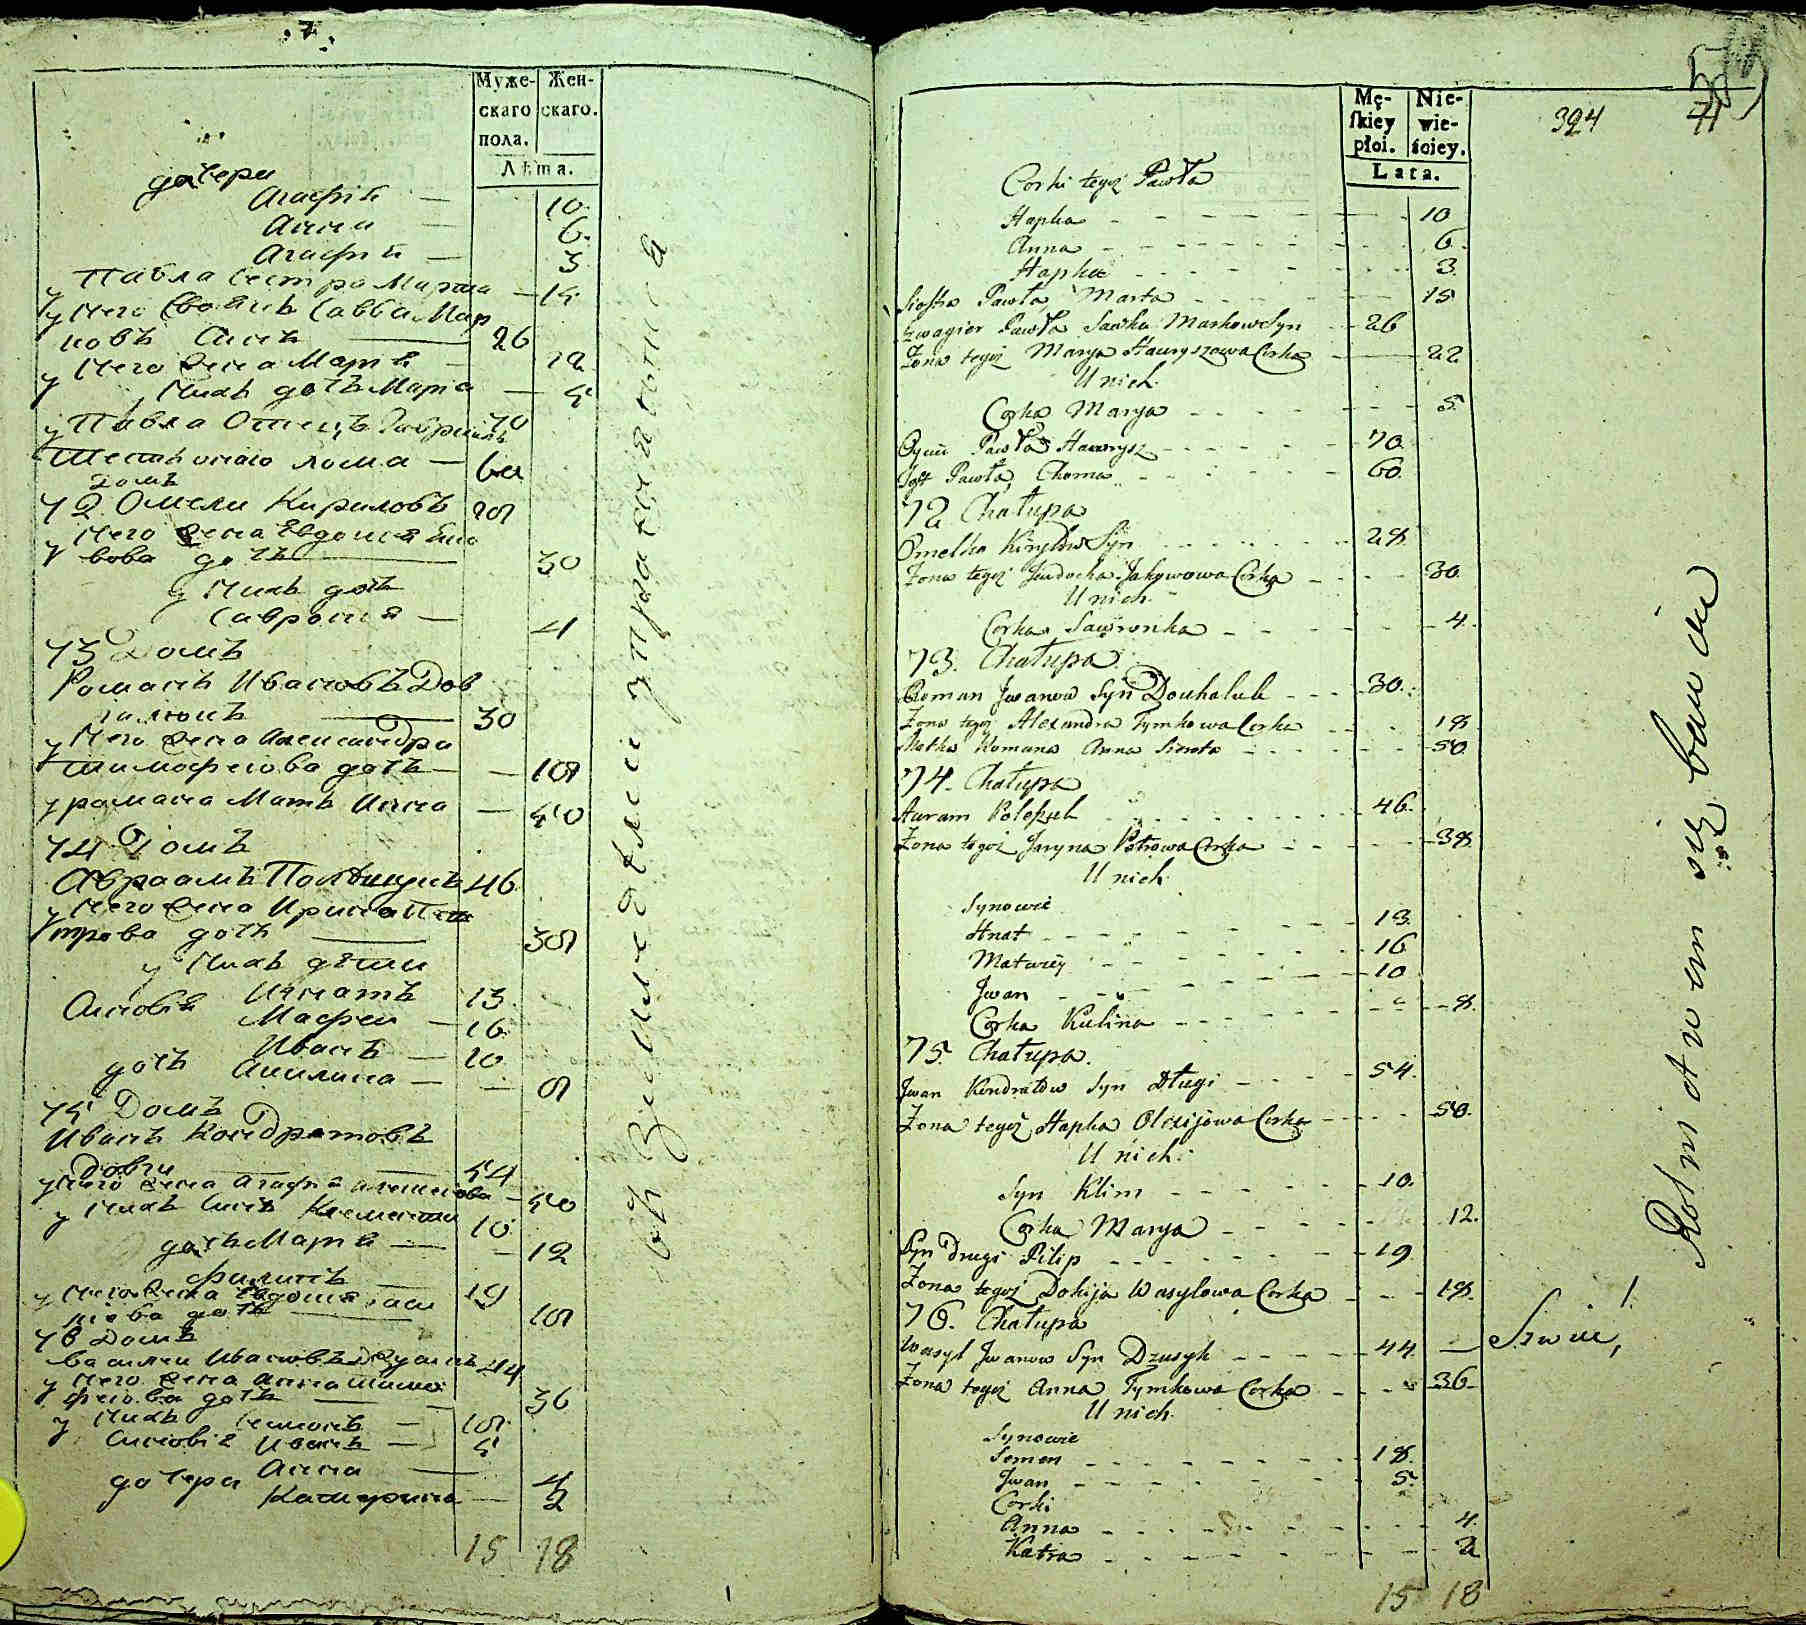 7.
Муже-
скаго
пола.
Жен-
скаго.
Лѣта.
дочери
Агафiя — 10
Анна — 6.
Агафiя — 3
у Павла сестра Марта — 15
у него своякъ Савва Мар
ковъ сынъ — 26
у него жена Марiя — 22
у нихъ дочь Марiя — 5
у Павла Отецъ Гавриилъ 70
Тесть оного Хома — 60
72 Домъ
Омелко Кириловъ 28
у него жена Евдокiя Яко
вова дочь — 30
у нихъ дочь
Савронiя — 4
73 Домъ
Романъ Ивановъ Дов
галюкъ — 30
у него жена Александра
Тимофеева дочь — 18
у романа Мать Анна — 50
74 Домъ
Авраамъ 46
у него жена Ирина Пе
трова дочь — 38
у нихъ дѣти
Сыновья Игнатъ 13
Матфеи — 16
Иванъ — 10
дочь Акилина — 8
75 Домъ
Иванъ Кондратовъ
Довги — 54
у него жена Агафiя Алексеева — 50
у нихъ сынъ Климентiй 10
дочь Марiя — 12
Филипъ — 19
у него жена Евдокiя Васи
лiева дочь — 18
76 Домъ
Василiй Ивановъ Дзусикъ 44
у него жена Анна Тимо
феева дочь — 36
у нихъ Семионъ — 18
Сыновiя Иванъ — 5
дочери Анна — 4
Катерина — 2
15 18
въ Земле
394
71
Mę-
skiey
płci.
Nie-
wie-
sciey.
Lata.
Corki tegoż Pawła
Hapka - - - 10
Anna - - - 6.
Hapka - - - 3.
Siostra Pawła Marta - - - 15
Szwagier Pawła Sawka Markow Syn - - 26
Żona tegoż Marya Hawryszowa Corka - - 22
U nich
Corka Marya - - - 5.
Oyciec Pawła Hawrysz - - - 70.
Teść Pawła, Choma - - - 60.
72 Chałupa
Omelko Kiryłow Syn - - - 28.
Żona tegoż Jewdocha Jakowowa Corka - - - 30.
U nich
Corka Sawronka - - - 4.
73. Chałupa
Roman Jwanow Syn Douhaluk - - - 30.
Żona tegoż Alexandra Tymkowa Corka - - - 18
Matka Romana Anna Sierota - - - 50
74. Chałupa
Awram - - - 46.
Żona tegoż Jaryna Petrowa Corka - - - 38
U nich
Synowie
Hnat - - - 13.
Matwiey - - - 16
Jwan - - - 10
Corka Kulina - - - 8.
75. Chałupa.
Jwan Kondratow Syn Długi - - - 54.
Żona tegoż Hapka Olexijowa Corka - - - 50.
U nich:
Syn Klim - - - 10.
Corka Marya - - - 12.
Syn drugi Pilip - - - 19
Żona tegoż Dokija Wasylowa Corka - - - 18.
76. Chałupa
Wasyl Jwanow Syn Dzusyk - - - 44
Żona tegoż Anna Tymkowa Corka - - - 36.
U nich
Synowie
Semen - - - 18.
Jwan - - - 5.
Corki
Anna - - - 4.
Katra - - - 2
15 18
Rolnictwem się bawią
Szwiec,